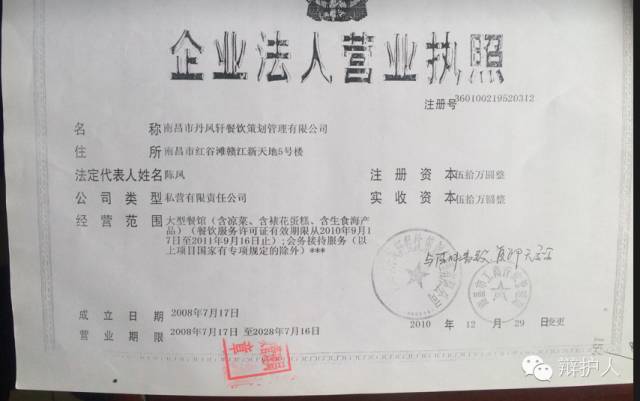 企业法人营业执照
注册号 360100219520312
名称 南昌市丹风轩餐饮策划管理有限公司
住所 南昌市红谷滩赣江新天地5号楼
法定代表人姓名 陈风
注册资本 伍拾万圆整
公司类型 私营有限责任公司
实收资本 伍拾万圆整
经营范围 大型餐馆（含凉菜、含裱花蛋糕、含生食海产
品）（餐饮服务许可证有效期限从2010年9月1
7日至2011年9月16日止）;会务接待服务（以
上项目国家有专项规定的除外）***
成立日期 2008年7月17日
营业期限 2008年7月17日 至2028年7月16日
2010 年 12 月 29 日变更
辩护人